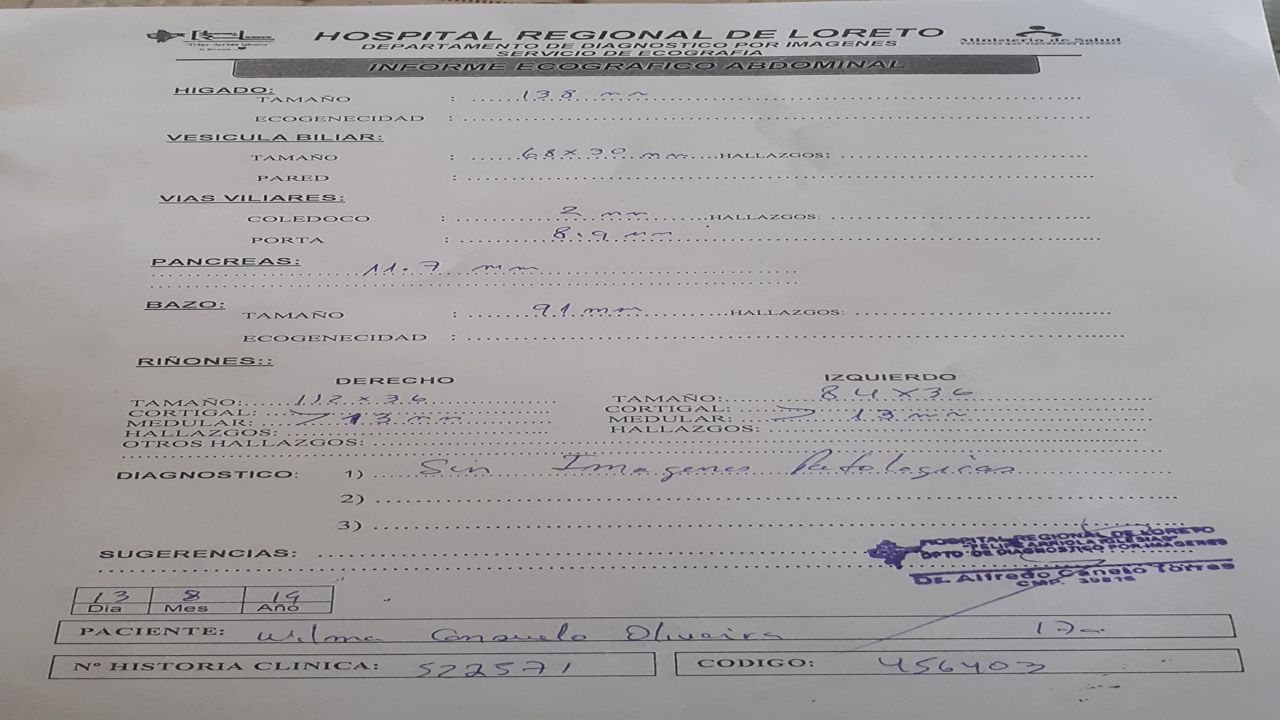 HOSPITAL REGIONAL DE LORETO
DEPARTAMENTO DE DIAGNOSTICO POR IMAGENES
SERVICIO DE ECOGRAFIA
Ministerio de Salud
INFORME ECOGRAFICO ABDOMINAL
HIGADO:
TAMAÑO : 138 mm
ECOGENECIDAD :
VESICULA BILIAR:
TAMAÑO : 68x30 mm HALLAZGOS:
PARED :
VIAS VILIARES:
COLEDOCO : 2 mm HALLAZGOS:
PORTA : 8.9 mm
PANCREAS: 11.7 mm
BAZO:
TAMAÑO : 91 mm HALLAZGOS:
ECOGENECIDAD :
RIÑONES::
DERECHO IZQUIERDO
TAMAÑO: 112 x 36 TAMAÑO: 84 x 36
CORTIGAL: CORTIGAL:
MEDULAR: > 13 mm MEDULAR: > 13 mm
HALLAZGOS: HALLAZGOS:
OTROS HALLAZGOS:
DIAGNOSTICO: 1) Sin Imagenes Patologicas
2)
3)
SUGERENCIAS:
HOSPITAL REGIONAL DE LORETO
"FELIPE ARRIOLA IGLESIAS"
DPTO DE DIAGNOSTICO POR IMAGENES
Dr. Alfredo Canelo Torres
CMP. 39816
13 8 19
Dia Mes Año
PACIENTE: Wilma Consuelo Oliveira 17a
Nº HISTORIA CLINICA: 522571 CODIGO: 456403